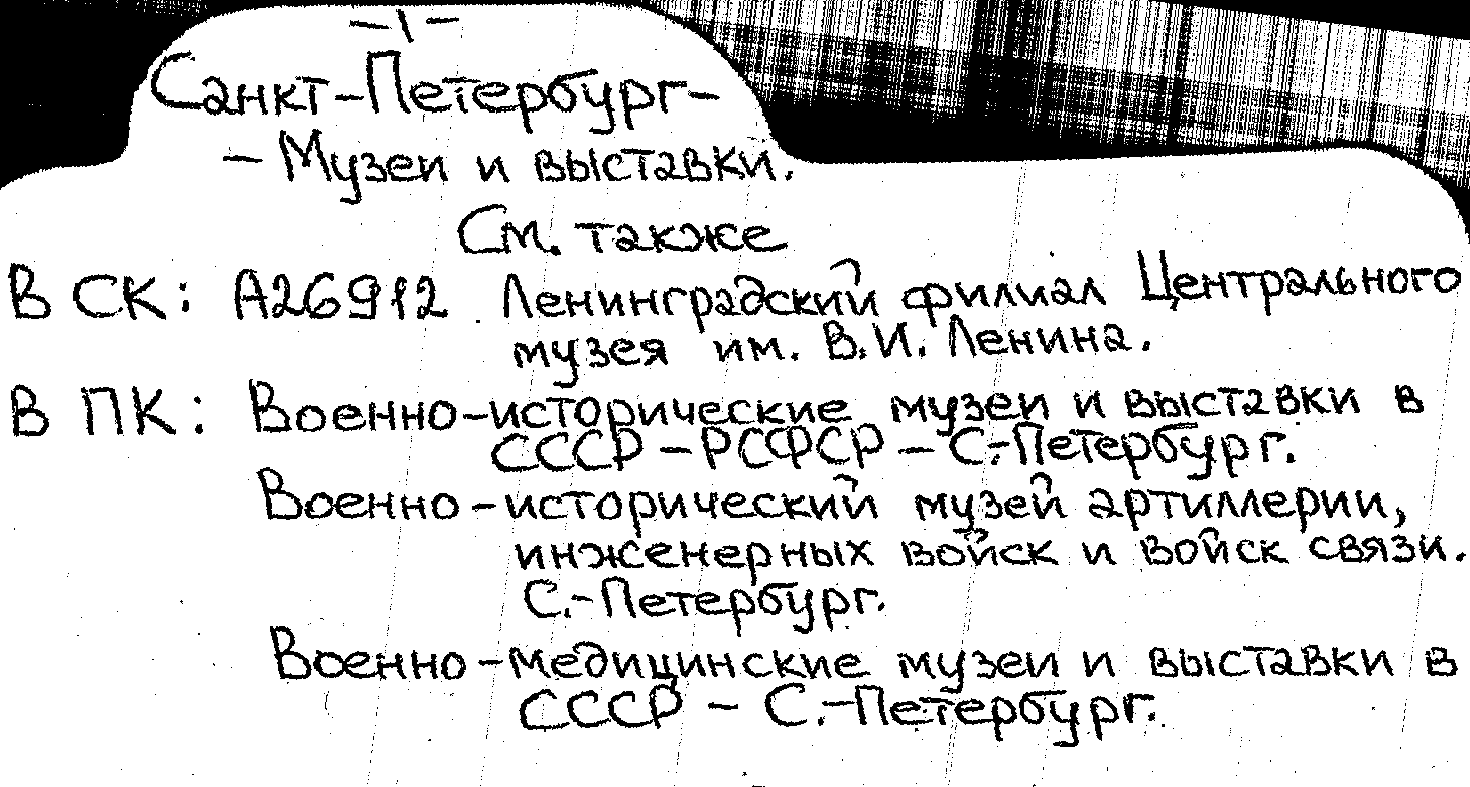 -1-
Санкт-Петербург-
- Музеи и выставки.
См. также
В СК: А26912 Ленинградский филиал Центрального
музея им. В.И. Ленина.
В ПК: Военно-исторические музеи и выставки в
СССР - РСФСР - С.-Петербург.
Военно-исторический музей артиллерии,
инженерных войск и войск связи.
С.-Петербург.
Военно-медицинские музеи и выставки в
СССР - С.-Петербург.